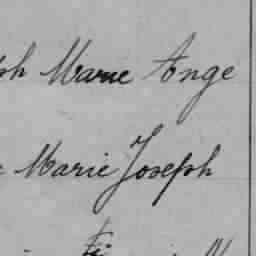 ph Marie Ange
Marie Joseph